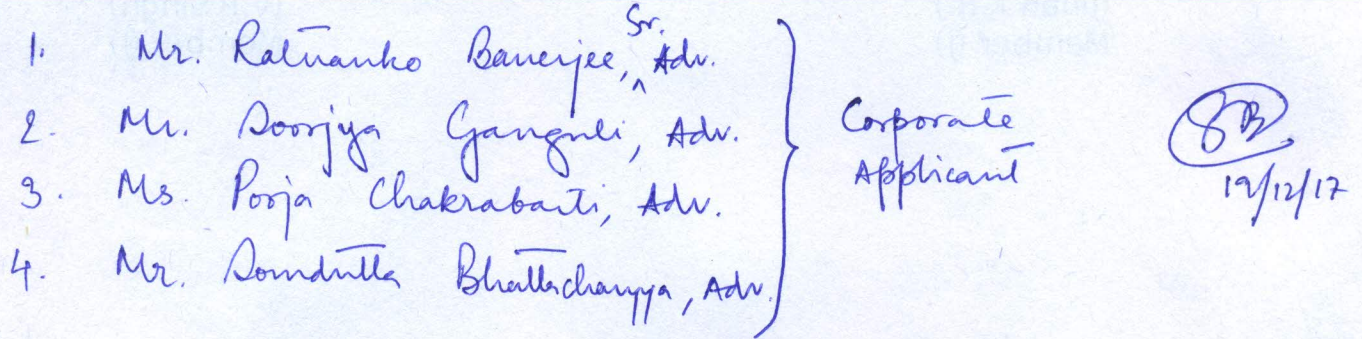 1. Mr. Ratnanko Banerjee, Sr. Adv.
2. Mr. Soorjya Ganguli, Adv.
3. Ms. Pooja Chakrabarti, Adv.
4. Mr. Somdutta Bhattacharyya, Adv.
Corporate
Applicant
SB
19/12/17